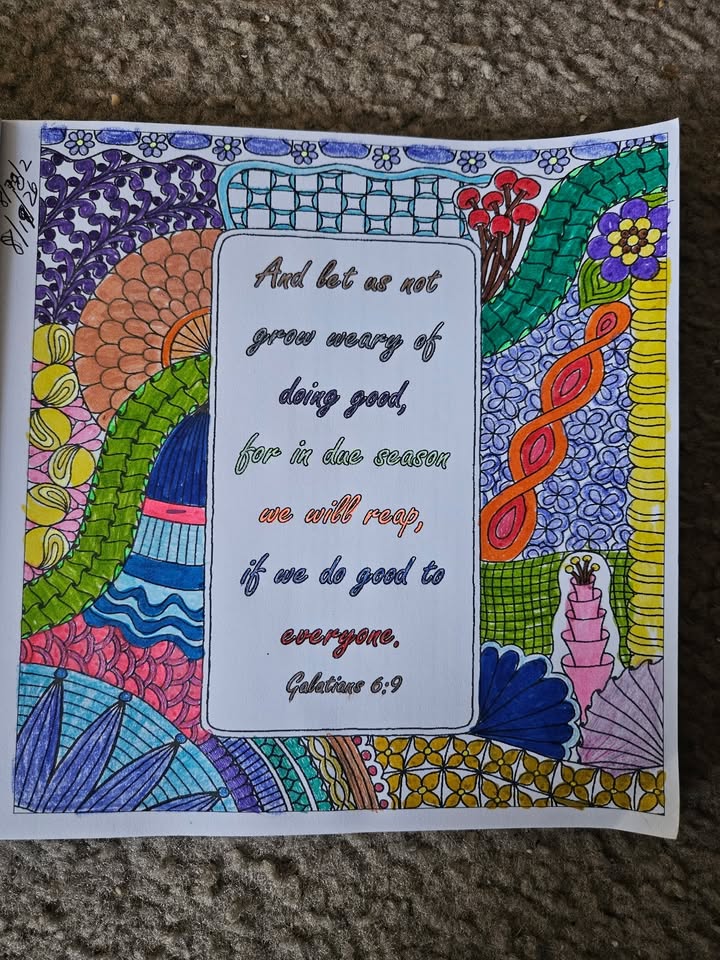 And let us not
grow weary of
doing good,
for in due season
we will reap,
if we do good to
everyone.
Galatians 6:9